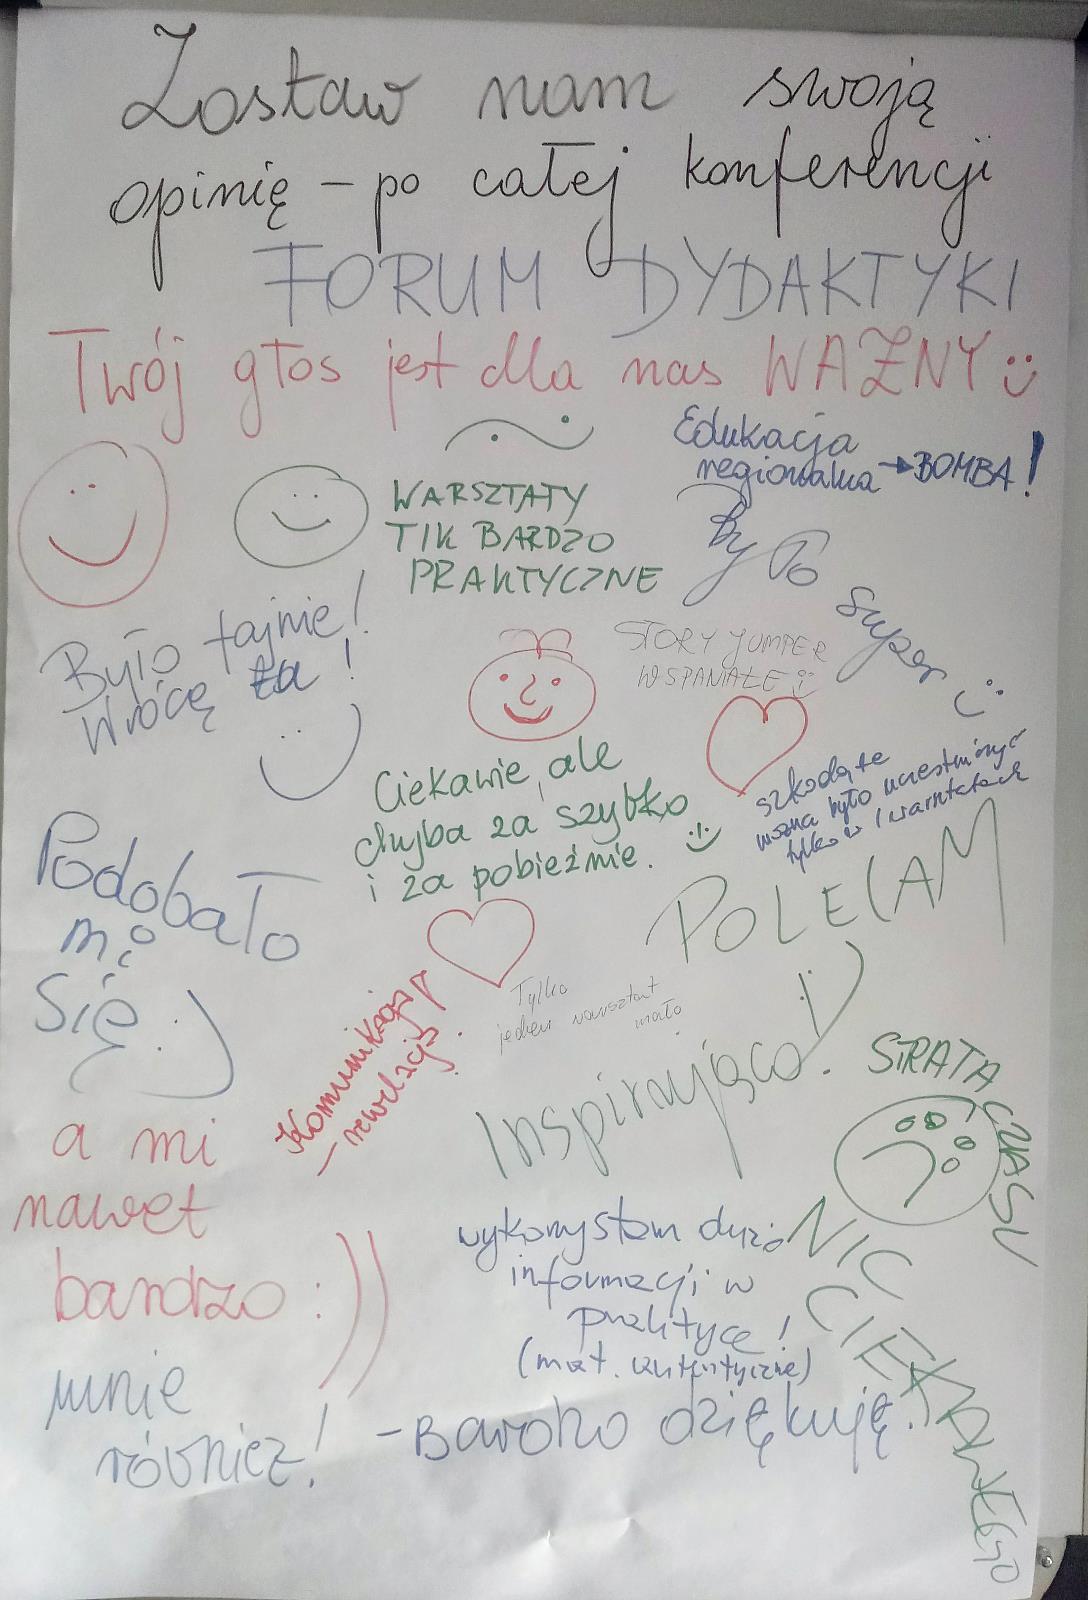 Zostaw nam swoją
opinię – po całej konferencji
FORUM DYDAKTYKI
Twój głos jest dla nas WAŻNY
Edukacja
regionalna → BOMBA!
WARSZTATY
TIK BARDZO
PRAKTYCZNE
Było super
Było fajnie!
Wrócę tu!
STORY JUMPER
WSPANIAŁE
Ciekawie, ale
chyba za szybko
i za pobieżnie.
szkoda, że
można było uczestniczyć
tylko w 1 warsztatach
POLECAM
Podobało
mi
Się :)
Tylko
jeden warsztat
mało
Komunikacja
– rewelacja.
Inspirująco.
STRATA CZASU
a mi
nawet
bardzo :))
wykorzystam dużo
informacji w
praktyce!
(mat. autentyczne)
NIC
CIEKAWEGO
mnie
również!
– Bardzo dziękuję.